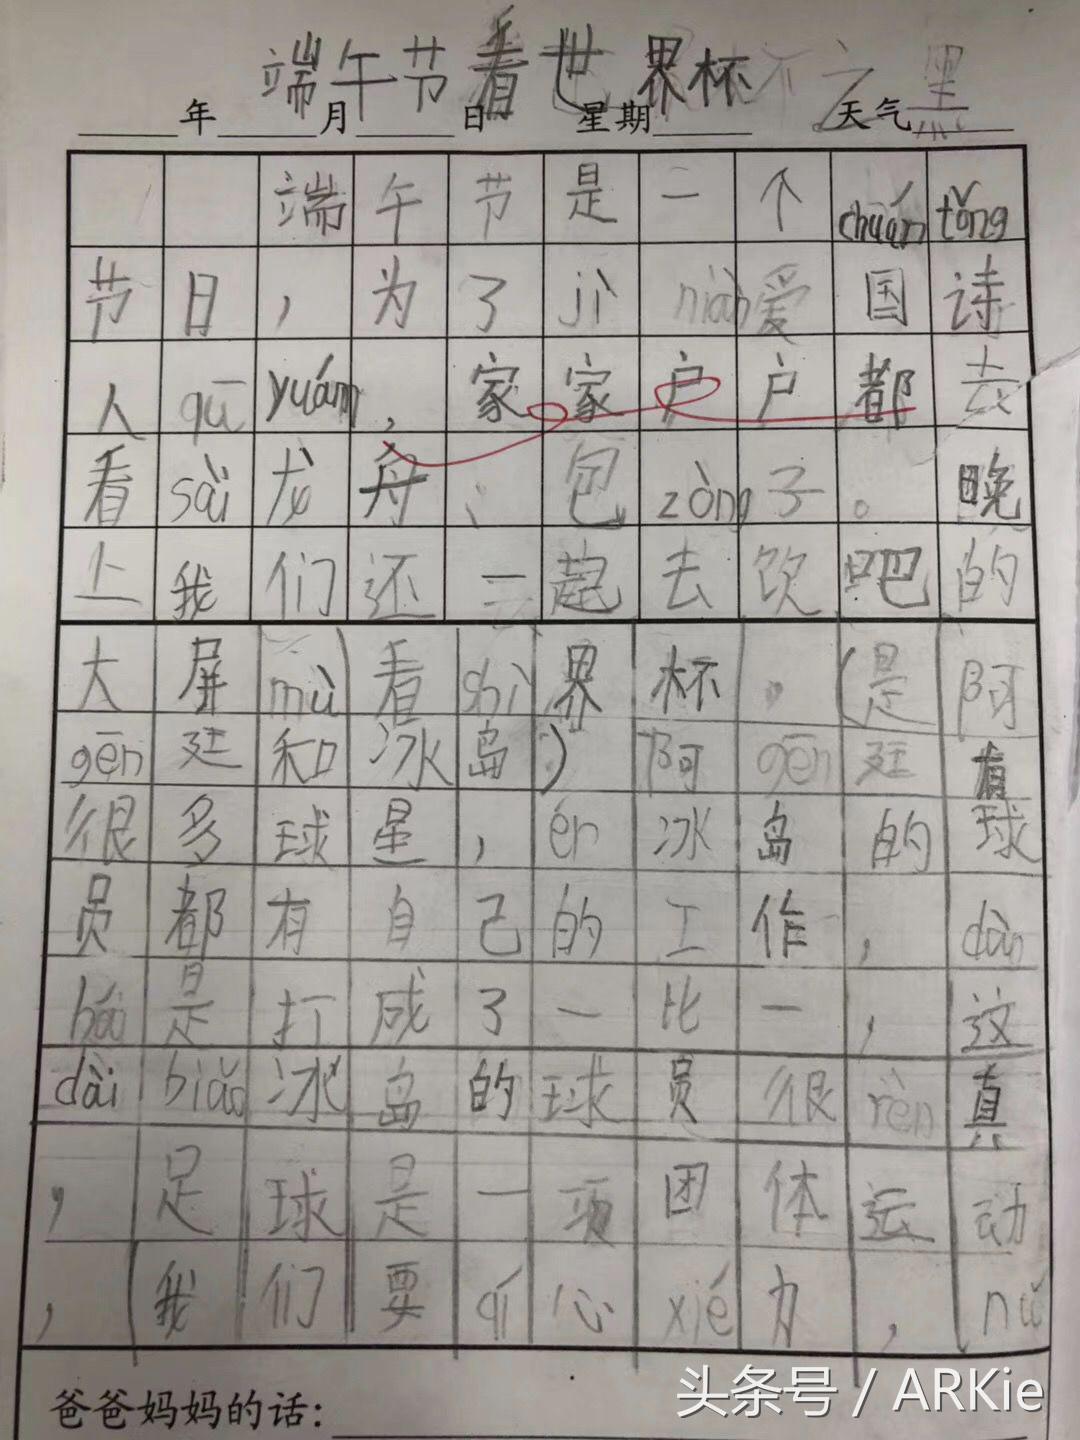 端午节看世界杯
年 月 日 星期 天气
端午节是一个chuántǒng
节日，为了jì niàn爱国诗
人qū yuán，家家户户都去
看sài龙舟、包zòng子。晚
上我们还一起去饮吧的
大屏mù看shì界杯。（是阿
gēn廷和冰岛）阿gēn廷有
很多球星，ér冰岛的球
员都有自己的工作，dàn
是打成了一比一，这
dài biǎo冰岛的球员很rèn真
，足球是一项团体运动
，我们要qí心xié力，nǔ
爸爸妈妈的话：
头条号 / ARKie